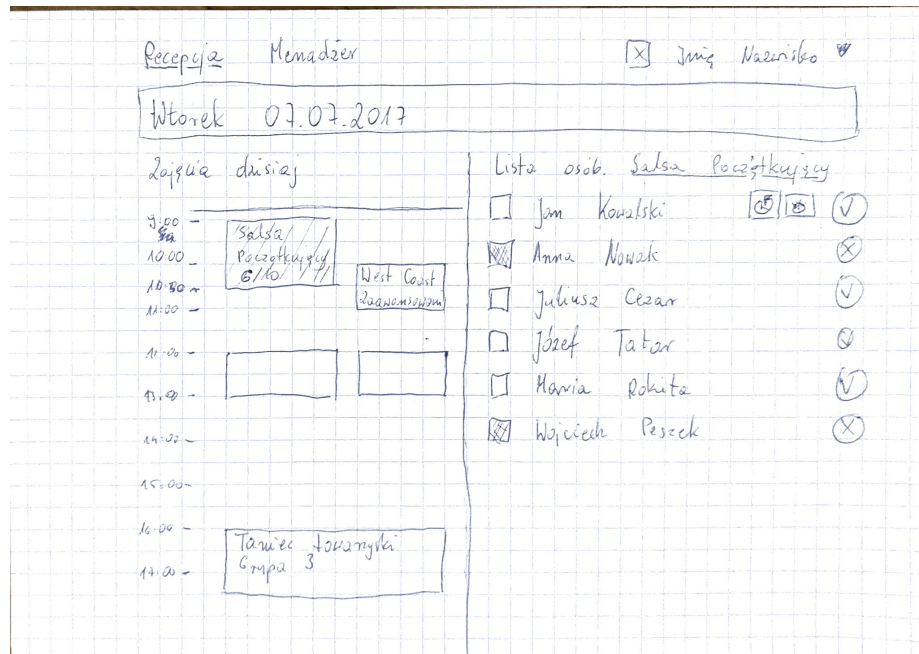 Recepcja Menadżer
Imię Nazwisko
Wtorek 07.07.2017
Zajęcia dzisiaj
9:00
10:00
10:30
11:00
13.00
14:00
15:00
16:00
17:00
Salsa
Początkujący
6/10
West Coast
Zaawansowani
Taniec towarzyski
Grupa 3
Lista osób. Salsa Początkujący
Jan Kowalski
Anna Nowak
Juliusz Cezar
Józef Tatar
Maria Rokita
Wojciech Peszek